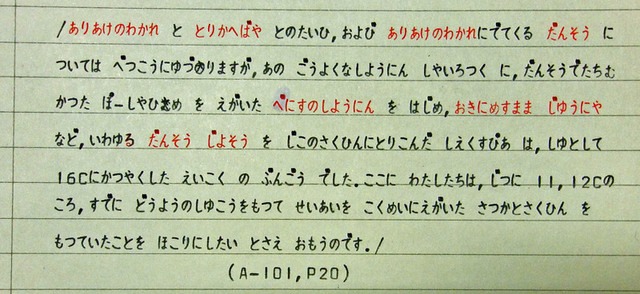 /ありあけのわかれ と とりかへばや とのたいひ,および ありあけのわかれにでてくる だんそう に
ついては べつこうにゆづりますが,あの ごうよくなしようにん しやいろつく に,だんそうでたちむ
かつた ぽーしやひめ を えがいた べにすのしようにん を はじめ,おきにめすまま じゆうにや
など,いわゆる だんそう じよそう を じこのさくひんにとりこんだ しえくすぴあ は,しゆとして
16Cにかつやくした えいこく の ぶんごう でした.ここに わたしたちは,じつに 11,12Cの
ころ,すでに どうようのしゆこうをもつて せいあいを こくめいにえがいた さつかとさくひん を
もつていたことを ほこりにしたい とさえ おもうのです./
(A-101,P20)